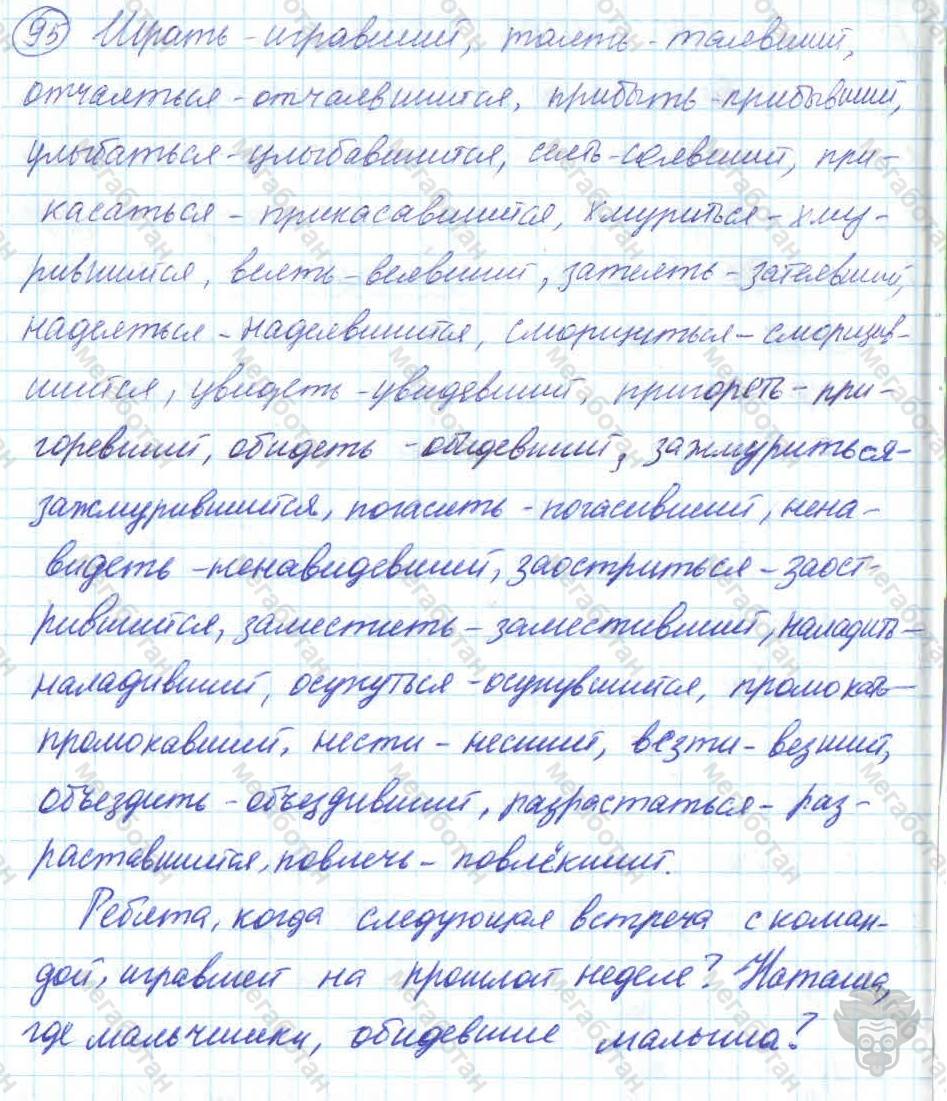 95 Играть - игравший, таять - таявший,
отчаяться - отчаявшийся, прибыть - прибывший,
улыбаться - улыбавшийся, сеять - сеявший, при-
касаться - прикасавшийся, хмуриться - хму-
рившийся, веять - веявший, затеять - затеявший,
надеяться - надеявшийся, сморщиться - сморщив-
шийся, увидеть - увидевший, пригореть - при-
горевший, обидеть - обидевший, зажмуриться -
зажмурившийся, погасить - погасивший, нена-
видеть - ненавидевший, заостриться - заост-
рившийся, заместить - заместивший, наладить -
наладивший, осунуться - осунувшийся, промокать -
промокавший, нести - несший, везти - везший,
объездить - объездивший, разрастаться - раз-
раставшийся, повлечь - повлёкший.
Ребята, когда следующая встреча с коман-
дой, игравшей на прошлой неделе? Наташа,
где мальчишки, обидевшие малыша?